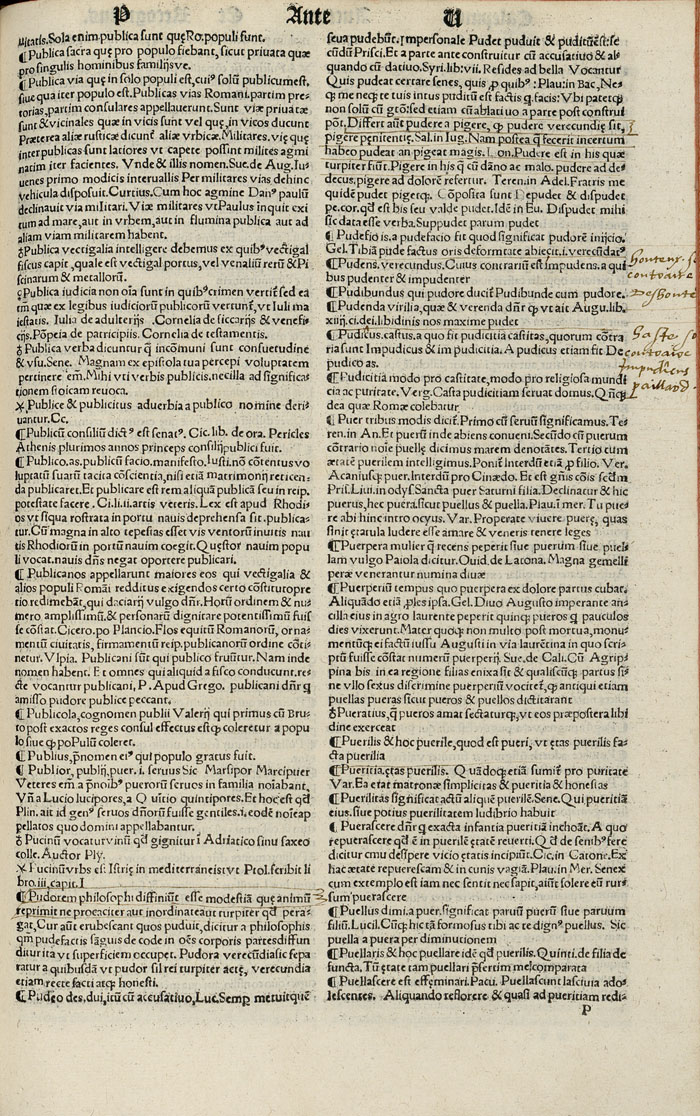 P Ante U
litatis. Sola enim publica sunt quę Ro. populi sunt.
¶ Publica sacra quę pro populo fiebant, sicut priuata quæ
pro singulis hominibus familijsve.
¶ Publica via quę in solo populi est, cui⁹ solū publicum est,
siue qua iter populo est. Publicas vias Romani, partim pre-
torias, partim consulares appellauerunt. Sunt viæ priuatæ
sunt & vicinales quæ in vicis sunt vel quę in vicos ducunt
Præterea aliæ rusticæ dicunt̃ aliæ vrbicæ. Militares. vię quę
inter publicas sunt latiores vt capere possint milites agmi
natim iter facientes. Vnde & illis nomen. Sue. de Aug. Iu-
uenes primo modicis interuallis Per militares vias dehinc
vehicula disposuit. Curtius. Cum hoc agmine Dan⁹ paulū
declinauit via militari. Viæ militares vt Paulus inquit exi
tum ad mare, aut in vrbem, aut in flumina publica aut ad
aliam viam militarem habent.
Publica vectigalia intelligere debemus ex quib⁹ vectigal
fiscus capit, quale est vectigal portus, vel venaliū rerū & Pi
scinarum & metallorū.
Publica iudicia non oīa sunt in quib⁹ crimen vertit̃ sed ea
tm̄ quæ ex legibus iudiciorū publicorū vertunt̃, vt Iuli ma
iestatis. Iulia de adulterijs. Cornelia de siccarijs & venefi-
cijs. Pōpeia de patricipiis. Cornelia de testamentis.
Publica verba dicuntur q̄ in cōmuni sunt consuetudine
& vsu. Sene. Magnam ex epistola tua percepi voluptatem
pertinere em̄. Mihi vti verbis publicis, necilla ad significas
tionem stoicam reuoca.
Publice & publicitus aduerbia a publico nomine deri-
uantur. Cc.
¶ Publicū consiliū dict⁹ est senat⁹. Cic. lib. de ora. Pericles
Athenis plurimos annos princeps consilij publici fuit.
¶ Publico. as. publicū facio. manifesto. Iusti. nō cōtentus vo
luptatū suarū tacita cōscientia, nisi etiā matrimonij reticen-
da publicaret. Et publicare est rem aliquā publicā seu in reip.
potestate facere. Ci. li. ii. artis veteris. Lex est apud Rhodi-
os vt siqua rostrata in portu nauis deprehensa sit. publica-
tur. Cū magna in alto tepesias esset vis ventorū inuitis nau
tis Rhodiorū in portū nauim coegit. Quęstor nauim popu
li vocat. nauis dn̄s negat oportere publicari.
¶ Publicanos appellarunt maiores eos qui vectigalia &
alios populi Romāi redditus exigendos certo cōstituto pre
tio redimebāt, qui daciarij vulgo dn̄r. Horū ordinem & nu-
mero amplissimū, & personarū dignitate potentissimū fuis
se cōstat. Cicero. po Plancio. Flos equitū Romanorū, orna-
mentū ciuitatis, firmamentū reip. publicanorū ordine cōti-
netur. Vlpia. Publicani sūt qui publico fruūtur. Nam inde
nomen habent. Et omnes qui aliquid a fisco conducunt. re-
cte vocantur publicani, P. Apud Grego. publicani dn̄r q̄
amisso pudore publice peccant.
¶ Publicola, cognomen publii Valerij qui primus cū Bru-
to post exactos reges consul effectus estq̄ coleretur a popu
lo siue q̄ poPulū coleret.
¶ Publius, p̄nomen ei⁹ qui populo gratus fuit.
¶ Publior, publij, puer. i. seruus Sic Marsipor Marcipuer
Veteres em̄ a p̄noib⁹ puerorū seruos in familia noiabant,
Vn̄ a Lucio lucipores, a Quītio quintipores. Et hoc est qd̄
Plin. ait id gen⁹ seruos dn̄orū fuisse gentiles. i. codē noie ap
pellatos quo domini appellabantur.
Pucinū vocatur vinū qd̄ gignitur ī Adriatico sinu saxeo
colle. Auctor Ply.
Pucinū vrbs es: Istrię in mediterraneis vt Ptol. scribit li
bro. iii. capit. I
¶ Pudorem philosophi diffiniūt esse modestiā que animū
reprimit ne procaciter aut inordinate aut turpiter qd̄ pera-
gat, Cur aut erubescant quos puduit, dicitur a philosophis
qm̄ pudefactis sāguis de code in oēs corporis partes diffun
ditur ita vt superficiem occupet. Pudora verecūdia sic sepa
ratur a quibusdā vt pudor sil rei turpiter actę, verecundia
etiam recte facti atq̄ honesti.
¶ Pudeo des, dui, itū cū accusatiuo, Luc. Semp̄ metuit quē
seua pudebūt. Impersonale Pudet puduit & puditūest: se
cūdū Prisci. Et a parte ante construitur cū accusatiuo & ali
quando cū datiuo. Syri. lib: vii. Resides ad bella Vocantur
Quis pudeat certare senes, quis p̄ quib⁹: Plau: in Bac, Ne-
q̄ me necq̄ te tuis intus puditū est factis q̄ facis: Vbi patet q̄
non solū cū gtō: sed etiam cū ablatiuo a parte post construi
pōt. Differt aūt pudere a pigere, q̄ pudere verecundię sit,
pigere penitentię. Sal. in Iug. Nam postea q̄ fecerit incertum
habeo pudeat an pigeat magis. Don. Pudere est in his quæ
turpiter fiūt. Pigere in his q̄ cū dāno ac malo. pudere ad de-
decus, pigere ad dolorē refertur. Teren. in Adel. Fratris me
quidē pudet pigetq̄. Cōposita sunt Depudet & dispudet
pe. cor. qd̄ est bis seu valde pudet. Idē in Eu. Dispudet mihi
sic data esse verba. Suppudet parum pudet
¶ Pudefio is, a pudefacio fit quod significat pudorē iniicio.
Gel. Tibiā pude factus oris deformitate abiecit. i. verecūdat⁹
¶ Pudens. verecundus. Cuius contrariū est Impudens. a qui
bus pudenter & impudenter
¶ Pudibundus qui pudore ducit̃ Pudibunde cum pudore.
¶ Pudenda virilia, quæ & verenda dn̄r q̄ vt ait Augu. lib.
xiiij. ci. dei. libidinis nos maxime pudet
¶ Pudicus. castus, a quo fit pudicitia castitas, quorum cōtra
ria sunt Impudicus & im pudicitia. A pudicus etiam fit De
pudico as.
¶ Pudicitia modo pro castitate, modo pro religiosa mundi
cia ac puritate. Verg. Casta pudicitiam seruat domus. Qn̄q̄
dea quæ Romæ colebatur
¶ Puer tribus modis dicit̃. Primo cū seruū significamus. Te-
ren. in An. Et puerū inde abiens conueni. Secūdo cū puerum
cōtrario noie puellę dicimus marem denōtates. Tertio cum
ætatē puerilem intelligimus. Ponit̃ Interdū etiā p̄ filio. Ver.
Acaniusq̄ puer. Interdū pro Cinædo. Et est gn̄is cōis scdm̄
Pris. Liui. in odys. Sancta puer Saturni filia. Declinatur & hic
puerus, hec puera. sicut puellus & puella. Plau. ī mer. Tu pue-
re abi hinc intro ocyus. Var. Properate viuere puerę, quas
sinit ętatula ludere esse amare & veneris tenere leges
¶ Puerpera mulier q̄ recens peperit siue puerum siue puel-
lam vulgo Paiola dicitur. Ouid. de Latona. Magna gemelli
peræ venerantur numina diuæ
¶ Puerperiū tempus quo puerpera ex dolore partus cubat.
Aliquādo etiā p̄les ipsa. Gel. Diuo Augusto imperante an-
cilla eius in agro laurente peperit quinq̄ pueros q̄ pauculos
dies vixerunt. Mater quoq̄ non multo post mortua, monu-
mentūq̄ ei factū iussu Augusti in via laurētina in quo scri-
ptū fuisse cōstat numerū puerperij. Sue. de Cali. Cū Agrip-
pina bis in ea regione filias enixa sit & qualiscūq̄ partus si-
ne vllo sextus discrimine puerperiū vocitet̃, q̄ antiqui etiam
puellas pueras sicut pueros & puellos dictitarant
Pueratius, q̄ pueros amat sectatur q̄, vt eos præpostera libi
dine exerceat
¶ Puerilis & hoc puerile, quod est pueri, vt ętas puerilis fa-
cta puerilia
¶ Pueritia, ętas puerilis. Quādoq̄ etiā sumit̃ pro puritate
Var. Ea etat matronæ simplicitas & pueritia & honestas
¶ Puerilitas significat actū aliquē puerilē. Sene. Qui pueritiā
eius, siue potius puerilitatem ludibrio habuit
¶ Puerascere dn̄r q̄ exacta infantia pueritiā inchoāt. A quo
repuerascere qd̄ ē in puerilē ętatē reuerti. Qd̄ de senib⁹ fere
dicitur cmu despere vicio ętatis incipiūt. Cic. in Catone. Ex
hac ætate repuerescam & in cunis vagiā. Plau. in Mer. Senex
cum extemplo est iam nec sentit nec sapit, aiūt solere eū rur-
sum puerascere
¶ Puellus dimi. a puer. significat paruū puerū siue paruum
filiū. Lucil. Cūq̄ hic tā formosus tibi ac te dign⁹ puellus. Sic
puella a puera per diminutionem
¶ Puellaris & hoc puellare idē qd̄ puerilis. Quinti. de filia de
functa. Tū ętate tam puellari p̄sertim me comparata
¶ Puellascere est effęminari. Pacu. Puellascunt lasciuia ado-
lescentes. Aliquando reflorere & quasi ad pueritiam redi-
P
honteux
contraire
Deshonte
contraire
impudicus
paillard